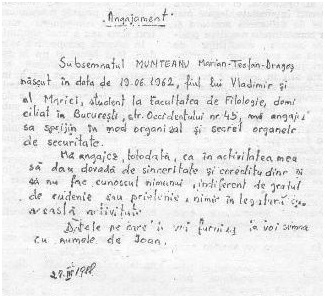 Angajament.
Subsemnatul MUNTEANU Marian-Teofan-Dragoș
născut în data de 19.06.1962, fiul lui Vladimir și
al Mariei, student la Facultatea de Filologie, domi
ciliat în București, str. Occidentului nr. 45, mă angajez
sa sprijin în mod organizat și secret organele
de securitate.
Mă angajez, totodată, ca în activitatea mea
să dau dovadă de sinceritate și corectitudine și
să nu fac cunoscut nimănui, indiferent de gradul
de rudenie sau prietenie, nimic în legătură cu
această activitate.
Datele pe care le voi furniza le voi semna
cu numele de Ioan.